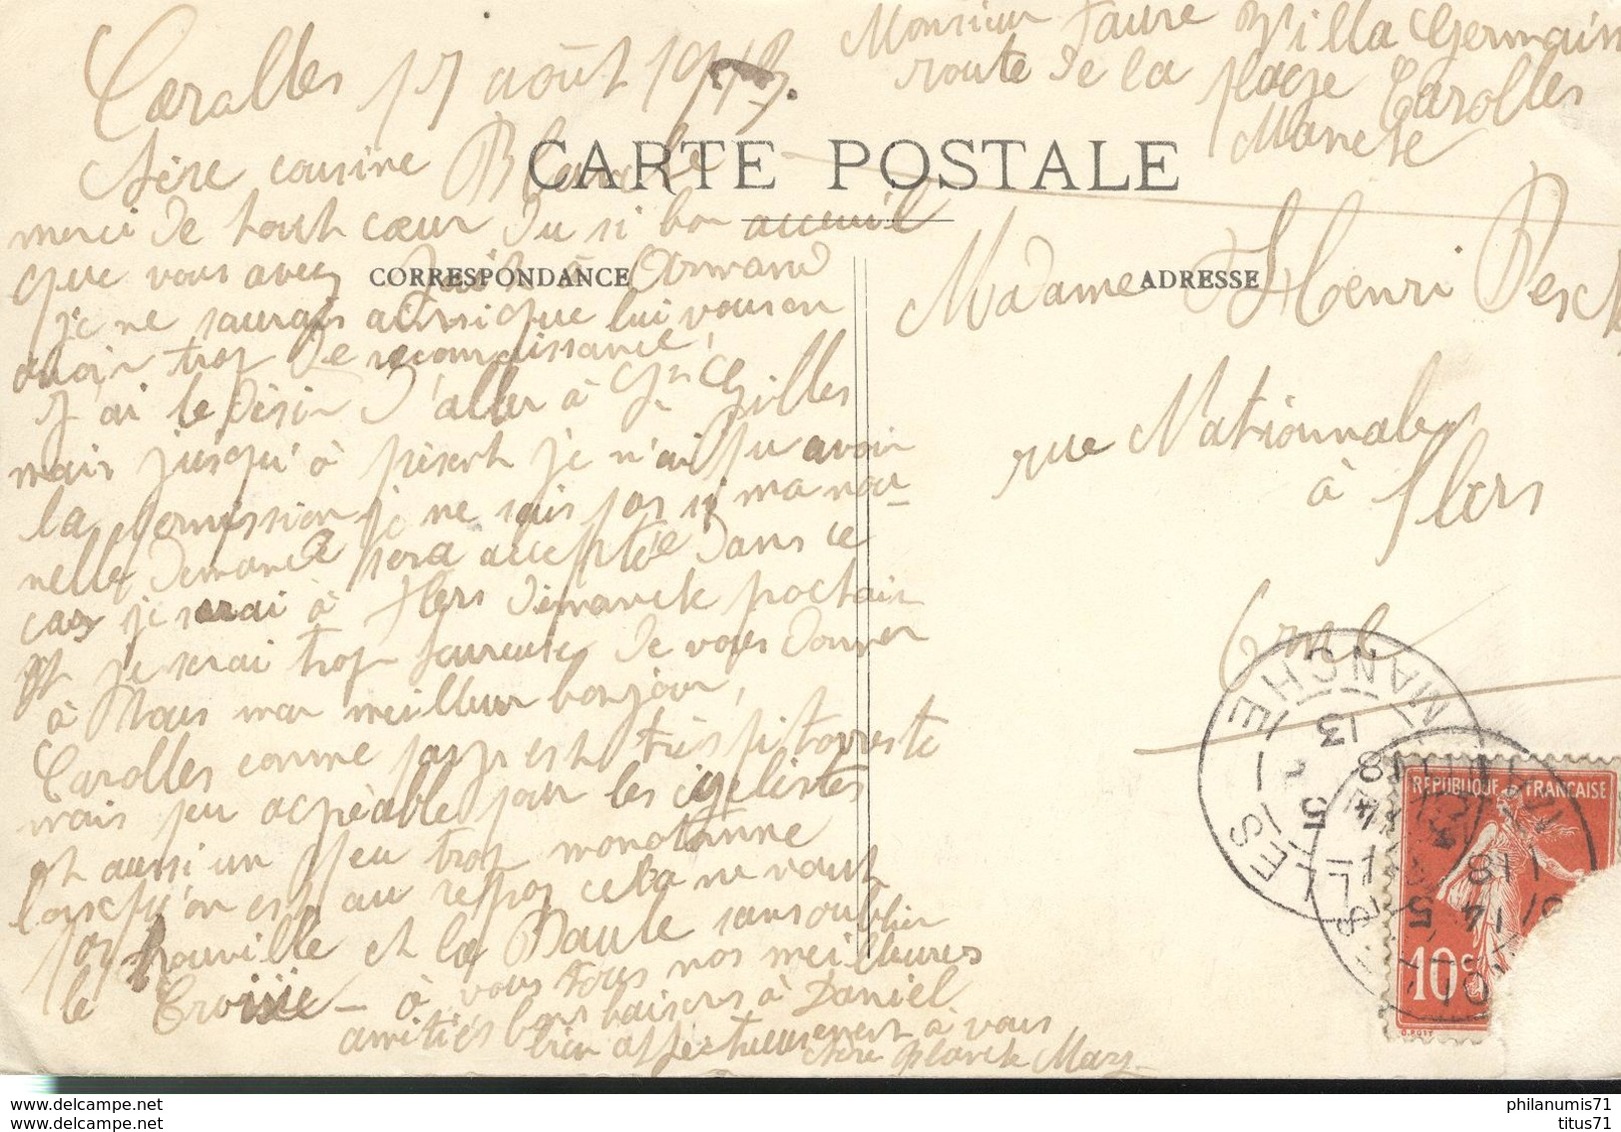 Carolles 17 août 1913.
Chère cousine Blanche
merci de tout cœur du si bon acceuil
que vous avez fait à Armand
je ne saurais ainsi que lui vous en
avoir trop de reconnaissance,
J'ai le désir d'aller à St Gilles
mais jusqu'à présent je n'ai pu avoir
la permission, je ne sais pas si ma nou-
velle demande sera acceptée dans ce
cas je serai à Flers dimanche prochain
et je serai trop heureuse de vous donner
à tous mon meilleur bonjour,
Carolles comme pays est très pitoreste
mais peu agréable pour les cyclistes
et aussi un peu trop monotonne
lorsqu'on est au repos cela ne vaut
pas Trouville et la Baule sans oublier
le Croisic - à vous tous nos meilleures
amitiés bons baisers à Daniel
bien affectueusement à vous
Blanche
Monsieur Faure Villa Germain
route de la plage Carolles
Manche
CARTE POSTALE
CORRESPONDANCE
ADRESSE
Madame Henri Pesch
rue Nationale
à Flers
Orne
MANCHE
13
LES
REPUBLIQUE FRANÇAISE
10c
philanumis71
titus71